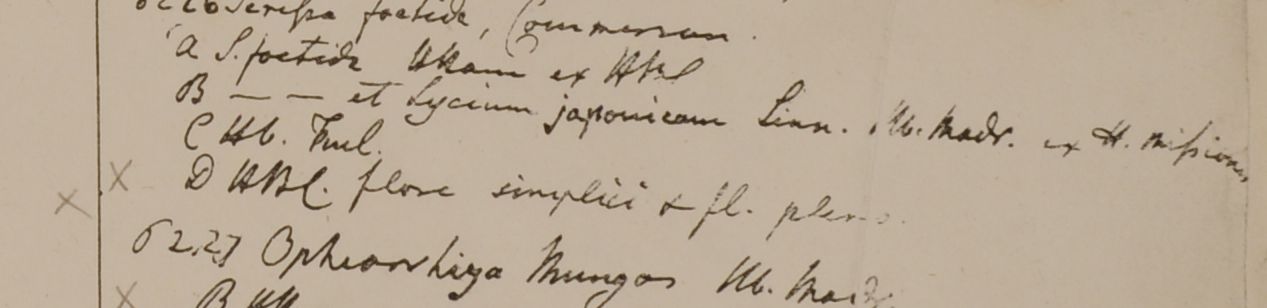 6226 Serissa foetida, Commerson.
A S. foetida HHam ex HBC
B — — et Lycium japonicum Linn. Hb. Madr. ex H. missionis
C Hb. Finl.
D HBC. flore simplici & fl. pleno.
6227 Ophiorrhiza Mungos Hb. Madr
B HH